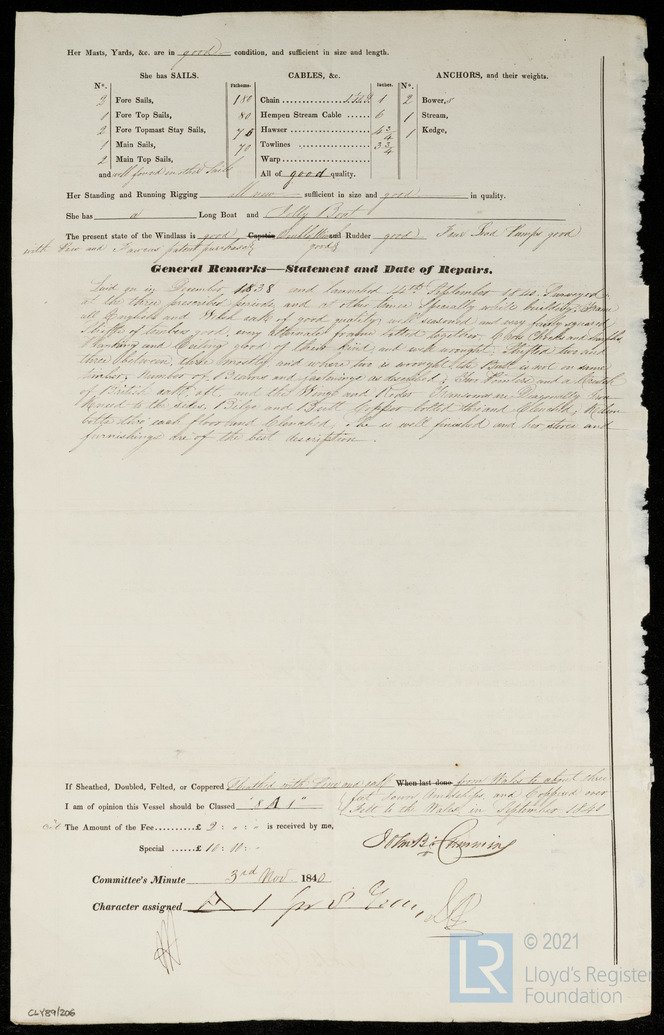 Her Masts, Yards, &c. are in good condition, and sufficient in size and length.
She has SAILS. CABLES, &c. ANCHORS, and their weights.
No. Fathoms. Inches. No.
2 Fore Sails, 180 Chain 1 2 Bower,s
1 Fore Top Sails, 80 Hempen Stream Cable 6 1 Stream,
2 Fore Topmast Stay Sails, 75 Hawser 4 3/4 1 Kedge,
1 Main Sails, 70 Towlines 3 3/4
2 Main Top Sails, Warp
and well found in other Sails All of good quality.
Her Standing and Running Rigging all new sufficient in size and good in quality.
She has a Long Boat and Jolly Boat
The present state of the Windlass is good Capstan and Rudder good Four Lead Pumps good
with patent purchase good
General Remarks—Statement and Date of Repairs.
Laid on in December 1838 and launched 14th September 1840. Surveyed
at the three prescribed periods and at other times specially while building; Frame
all English and Welsh oak of good quality, well seasoned and very fairly squared
timbers good, every alternate frame bolted together,
Planking and Ceiling good of their kind and well wrought, Shifted two and
three between, three mostly, and where two is wrought the Butt is not in same
timber. Number of Beams and fastenings as described; Two Pointers and a Crutch
of British oak aft, and the Wing and Transoms are Diagonally
Kneed to the sides. Bilge and Butt Copper bolted thro and Clenched,
bolts thro' each floor and Clenched. She is well finished and her stores and
furnishings are of the best description.
If Sheathed, Doubled, Felted, or Coppered Sheathed with and oak When last done from Wales to about three
I am of opinion this Vessel should be Classed "8 A 1" feet down and Coppered over
Felt to the Wales in September 1840
The Amount of the Fee £ 2 : „ : „ is received by me,
Special £ 10 : 11 : „
Committee's Minute 3rd Nov. 1840
Character assigned A 1 for 8 Years,
CLY89/206
LR
© 2021
Lloyd's Register
Foundation